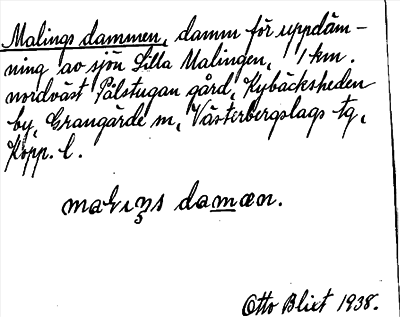 Malings dammen, damm för uppdäm-
ning av sjön Lilla Malingen, 1 km.
nordväst Pålstugan gård, Kybäcksheden
by, Grangärde sn, Västerbergslags tg,
Kopp. l.
damæn.
Otto Blixt 1938.